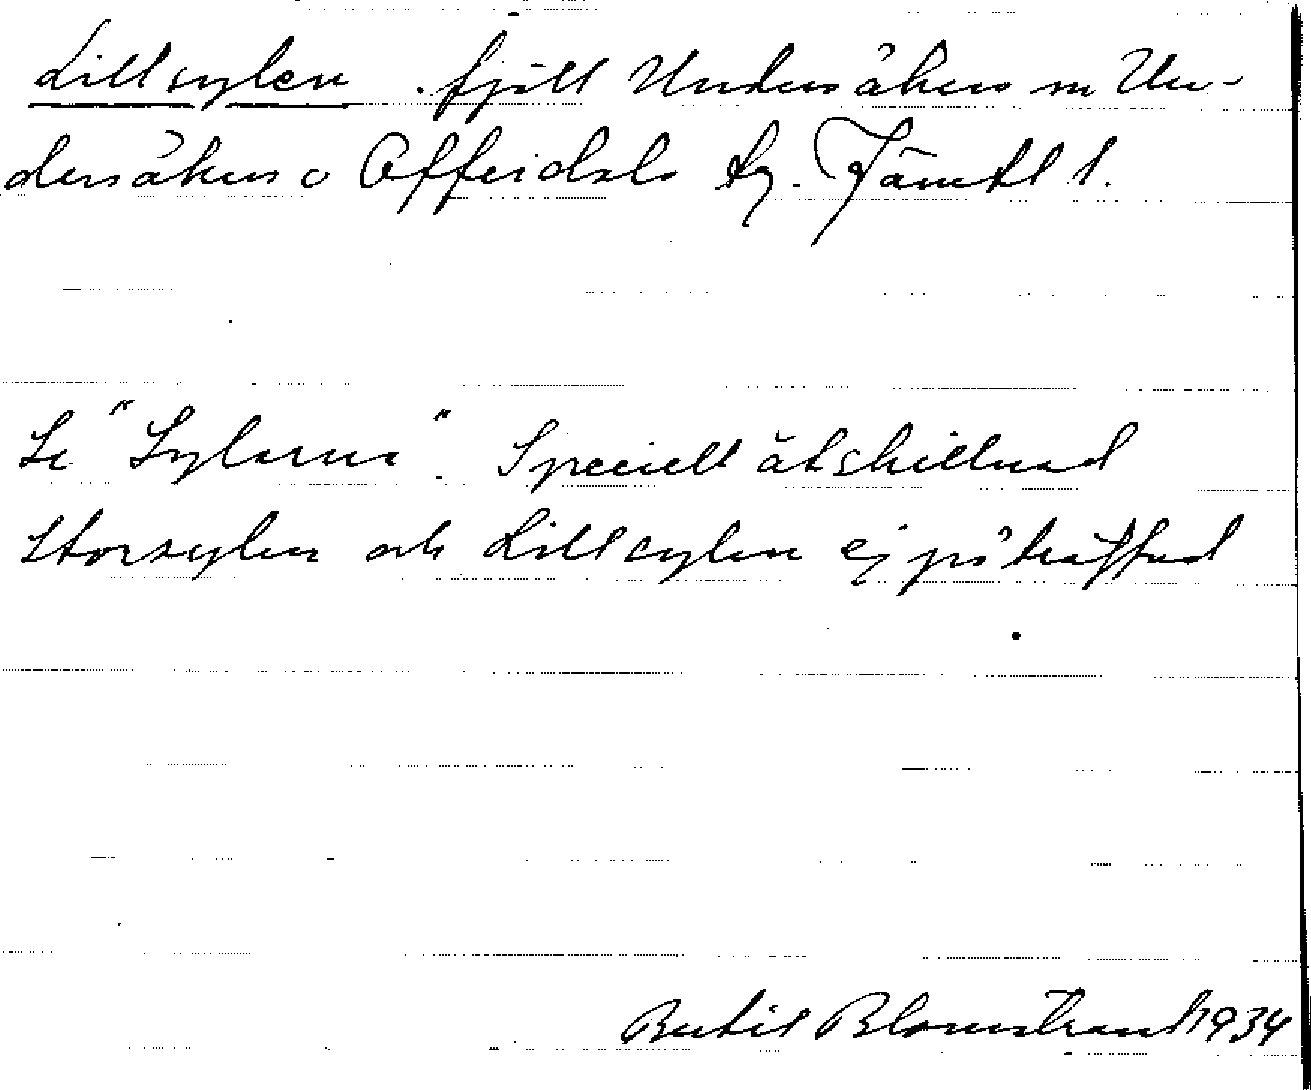 Lillsylen. fjäll Undersåkers sn Un-
dersåkers o Offerdals tg. Jämtl l.
Se "Sylarna". Speciell åtskillnad
Storsylen och Lillsylen ej påträffad
.
Bertil Blomstrand 1934